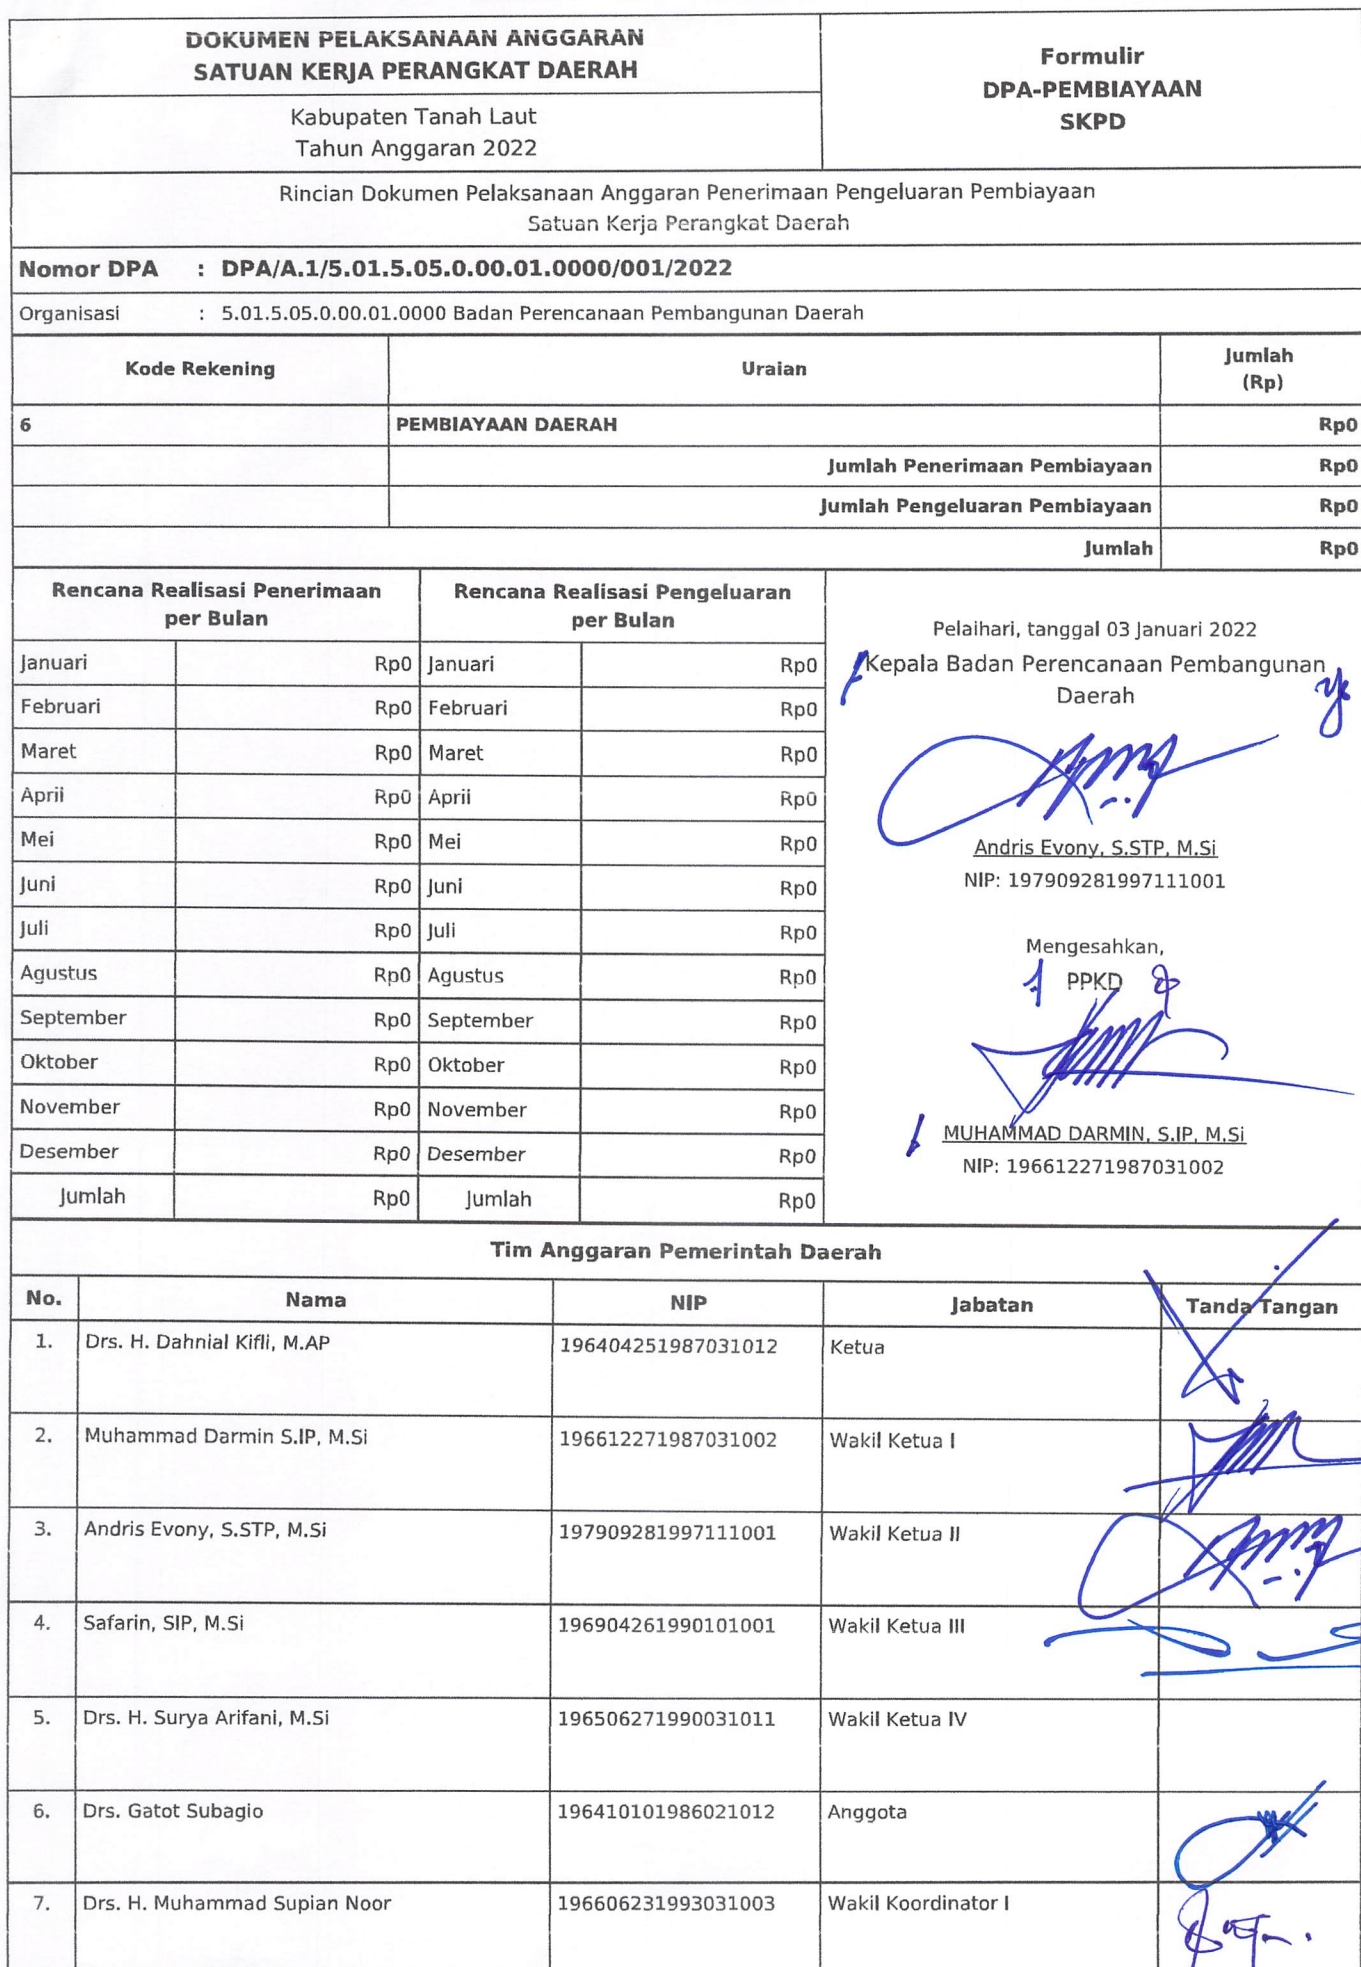 DOKUMEN PELAKSANAAN ANGGARAN
SATUAN KERJA PERANGKAT DAERAH
Formulir
DPA-PEMBIAYAAN
SKPD
Kabupaten Tanah Laut
Tahun Anggaran 2022
Rincian Dokumen Pelaksanaan Anggaran Penerimaan Pengeluaran Pembiayaan
Satuan Kerja Perangkat Daerah
Nomor DPA : DPA/A.1/5.01.5.05.0.00.01.0000/001/2022
Organisasi : 5.01.5.05.0.00.01.0000 Badan Perencanaan Pembangunan Daerah
Kode Rekening Uraian Jumlah
(Rp)
6 PEMBIAYAAN DAERAH Rp0
Jumlah Penerimaan Pembiayaan Rp0
Jumlah Pengeluaran Pembiayaan Rp0
Jumlah Rp0
Rencana Realisasi Penerimaan
per Bulan
Rencana Realisasi Pengeluaran
per Bulan
Januari Rp0 Januari Rp0
Februari Rp0 Februari Rp0
Maret Rp0 Maret Rp0
April Rp0 April Rp0
Mei Rp0 Mei Rp0
Juni Rp0 Juni Rp0
Juli Rp0 Juli Rp0
Agustus Rp0 Agustus Rp0
September Rp0 September Rp0
Oktober Rp0 Oktober Rp0
November Rp0 November Rp0
Desember Rp0 Desember Rp0
Jumlah Rp0 Jumlah Rp0
Pelaihari, tanggal 03 Januari 2022
Kepala Badan Perencanaan Pembangunan
Daerah
Andris Evony, S.STP, M.Si
NIP: 197909281997111001
Mengesahkan,
PPKD
MUHAMMAD DARMIN, S.IP, M.Si
NIP: 196612271987031002
Tim Anggaran Pemerintah Daerah
No. Nama NIP Jabatan Tanda Tangan
1. Drs. H. Dahnial Kifli, M.AP 196404251987031012 Ketua
2. Muhammad Darmin S.IP, M.Si 196612271987031002 Wakil Ketua I
3. Andris Evony, S.STP, M.Si 197909281997111001 Wakil Ketua II
4. Safarin, SIP, M.Si 196904261990101001 Wakil Ketua III
5. Drs. H. Surya Arifani, M.Si 196506271990031011 Wakil Ketua IV
6. Drs. Gatot Subagio 196410101986021012 Anggota
7. Drs. H. Muhammad Supian Noor 196606231993031003 Wakil Koordinator I